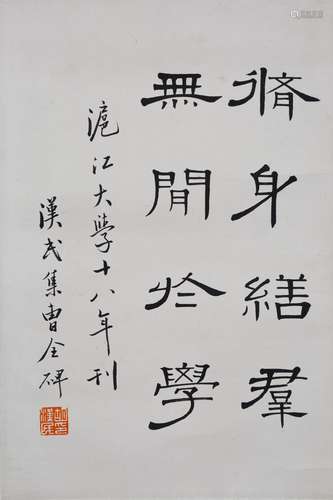 脩身繕羣
無閒於學
滬江大學十八年刊
漢民集曹全碑